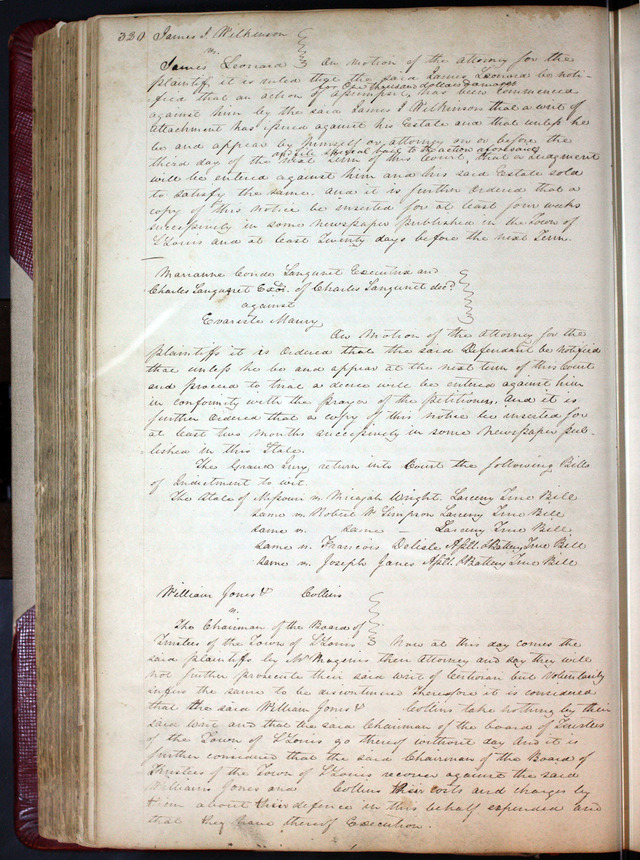 330 James J Wilkinson
vs.
James Leonard On motion of the attorney for the
plaintiff it is ruled that the said James Leonard be noti-
for One thousand dollars damages
fied that an action of assumpsit has been commenced
against him by the said James J Wilkinson that a writ of
attachment has issued against his Estate and that unless he
be and appear by himself or attorney on or before the
and file special bail to the action aforesaid
third day of the next Term of this Court, that a Judgment
will be entered against him and his said Estate sold
to satisfy the same. And it is further ordered that a
copy of this notice be inserted for at least four weeks
successively in some newspaper published in the Town of
St Louis and at least Twenty days before the next Term.
Marianne Conde Sanguinet Executrix and
Charles Sanguinet Exor. of Charles Sanguinet decd.
against
Evariste Maury
On Motion of the attorney for the
plaintiffs it is Ordered that the said Defendant be notified
that unless he be and appear at the next term of this Court
and proceed to trial a decree will be entered against him
in conformity with the prayer of the petitioners. And it is
further Ordered that a copy of this notice be inserted for
at least two months successively in some newspaper pub-
lished in this State.
The Grand Jury return into Court the following Bills
of Indictment to wit.
The State of Missouri vs. Micajah Wright. Larceny True Bill
Same vs. Robert W Simpson Larceny True Bill
Same vs. Same Larceny True Bill
Same vs. Francois Delisle Aslt. & Battery True Bill
Same vs. Joseph Janes Aslt. & Battery True Bill
William Jones & Collins
vs.
The Chairman of the Board of
Trustees of the Town of St Louis Now at this day comes the
said plaintiffs by Mr Magenis their Attorney and say they will
not further prosecute their said writ of Certiorari but voluntarily
suffer the same to be discontinued Therefore it is considered
that the said William Jones & Collins take nothing by their
said writ and that the said Chairman of the board of Trustees
of the Town of St Louis go thereof without day And it is
further considered that the said Chairman of the Board of
Trustees of the Town of St Louis recover against the said
Williams Jones and Collins their costs and charges by
them about their defence in this behalf expended and
that they have thereof Execution.